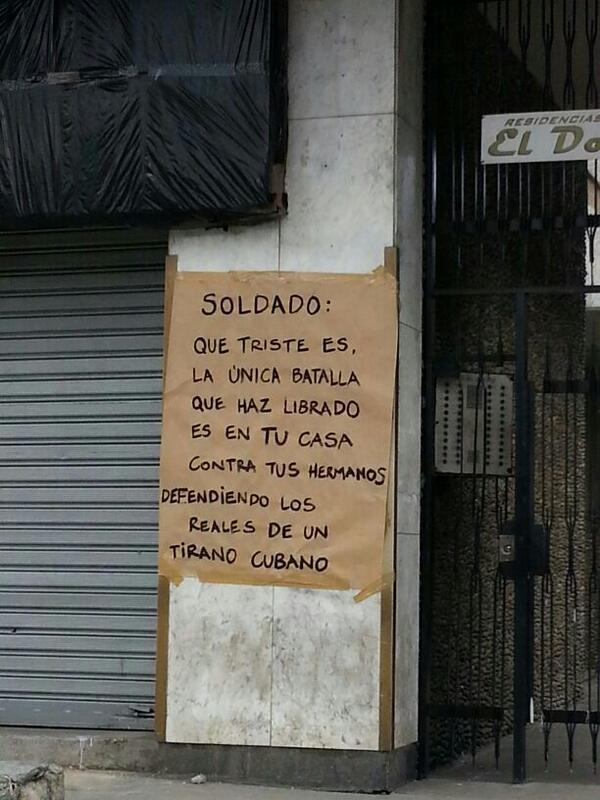 RESIDENCIAS
El Do
SOLDADO:
QUE TRISTE ES,
LA ÚNICA BATALLA
QUE HAZ LIBRADO
ES EN TU CASA
CONTRA TUS HERMANOS
DEFENDIENDO LOS
REALES DE UN
TIRANO CUBANO